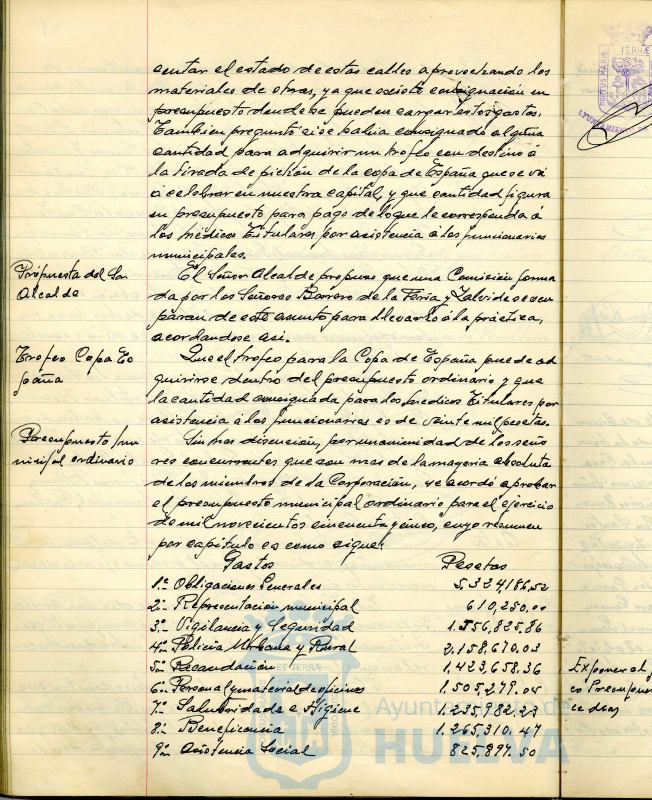 sentar el estado de estas calles aprovechando los
materiales de obras, ya que existe consignación en
presupuesto donde se pueden cargar estos gastos.
Tambien preguntó si se habia consignado alguna
cantidad para adquirir un trofeo con destino á
la tirada de pichón de la copa de España que se vá
á celebrar en nuestra capital, y que cantidad figura
en presupuesto para pago de lo que le corresponda á
los médicos Titulares por asistencia á los funcionarios
municipales.
Propuesta del Sor
Alcalde
El Señor Alcalde propuso que una Comisión forma
da por los Señores Borrero de la Feria y Zalvide se ocu
paran de este asunto para llevarlo á la práctica,
acordandose asi.
Trofeo Copa Es
paña
Que el trofeo para la Copa de España puede ad
quirirse dentro del presupuesto ordinario y que
la cantidad consignada para los médicos Titulares por
asistencia á los funcionarios es de veinte mil pesetas.
Presupuesto mu
nicipal ordinario
Sin mas discusión, por unanimidad de los seño
res concurrentes que son mas de la mayoria absoluta
de los miembros de la Corporación, se acordó aprobar
el presupuesto municipal ordinario para el ejercicio
de mil novecientos cincuenta y cinco, cuyo resumen
por capitulo es como sigue:
Gastos Pesetas
1º Obligaciones Generales 5,324,186,52
2º Representación municipal 610,250.00
3º Vigilancia y Seguridad 1.556,825,86
4º Policia Urbana y Rural 2,158,670,03
5º Recaudación 1,423,658.36
6º Personal y material de oficinas 1.505,279.04
7º Salubridad e Higiene 1.235,982.23
8º Beneficencia 1.265,310.47
9º Asistencia Social 825,897.50
Exponer al
co Presupues
ce dias
Ayuntamiento de
HUELVA